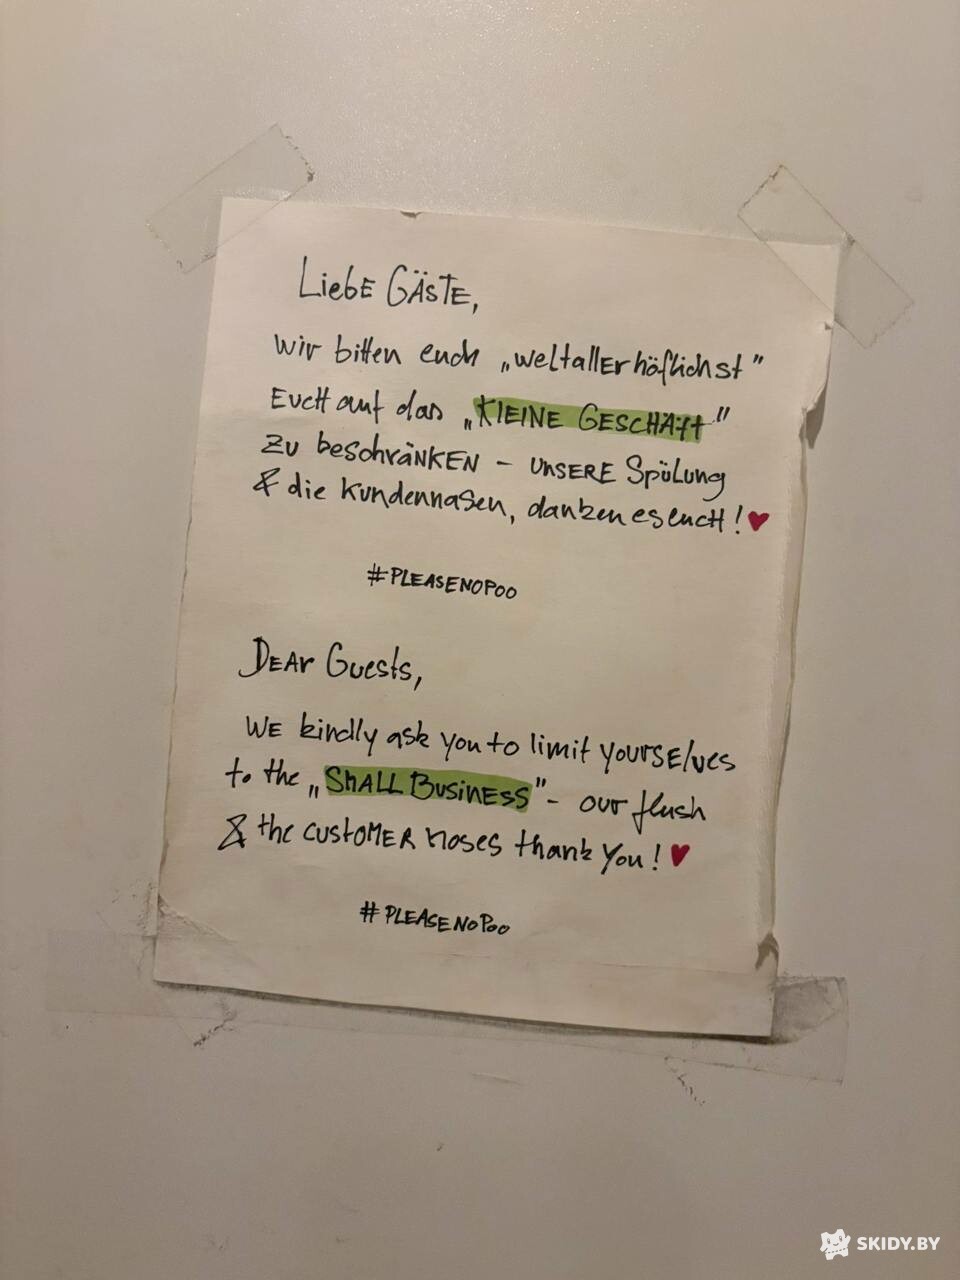 Liebe Gäste,
wir bitten euch „weltallerhöflichst"
Euch auf das „KLEINE GESCHÄFT"
zu beschränken - unsere Spülung
& die Kundennasen, danken es euch! ♥
#PLEASENOPOO
Dear Guests,
we kindly ask you to limit yourselves
to the „Small Business" - our flush
& the customer noses thank you! ♥
#PLEASENOPOO
SKIDY.BY